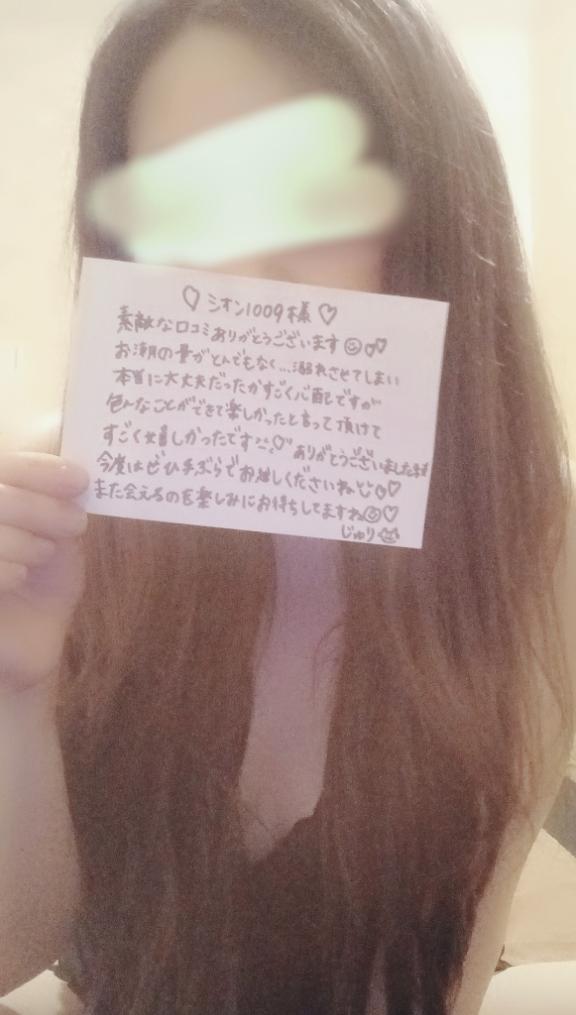 ♡シオン1009様♡
素敵な口コミありがとうございます
お潮の量がとんでもなく…溺れさせてしまい
本当に大丈夫だったかすごく心配ですが
色んなことができて楽しかったと言って頂けて
すごく嬉しかったです♡ありがとうございました
今度はぜひ手ぶらでお越しくださいね♡
また会えるのを楽しみにお待ちしてますね♡
じゅり